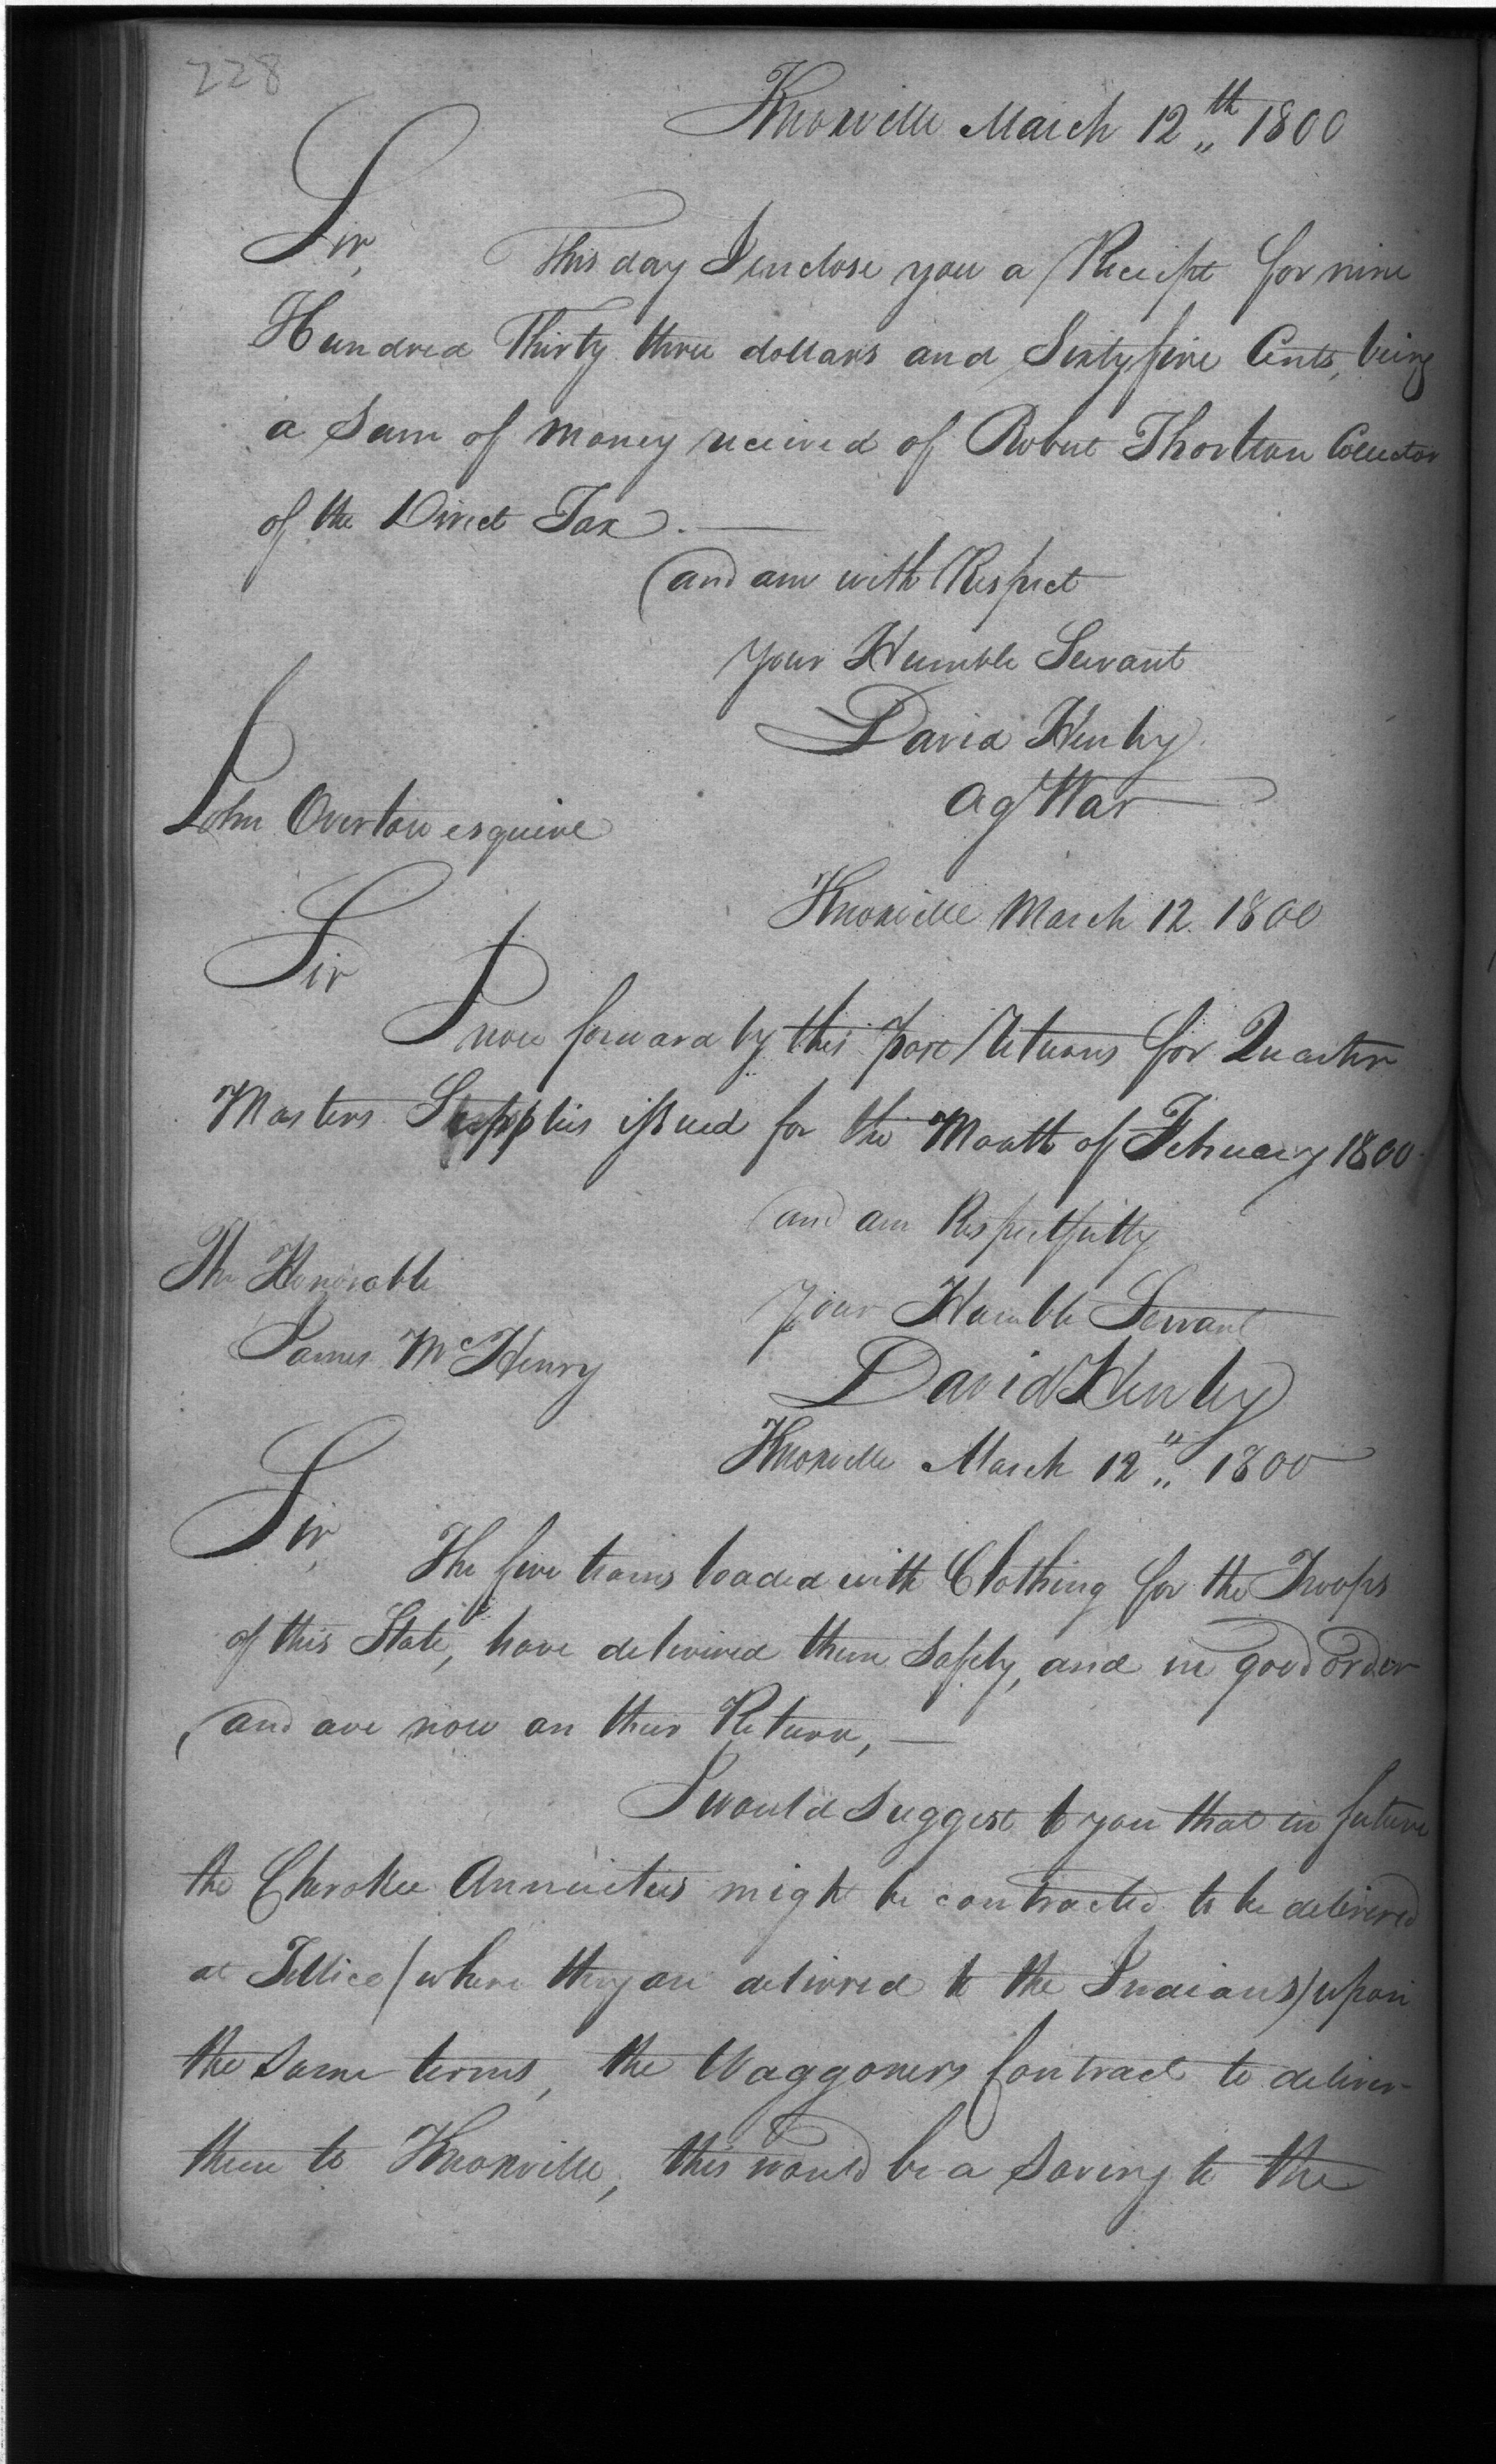 228
Knoxville March 12th 1800
Sir,
This day I enclose you a Receipt for nine
Hundred Thirty three dollars and Sixty five Cents, being
a Sum of money received of Robert Thornton Collector
of the Direct Tax. —
and am with Respect
your Humble Servant
David Henley
Ag War
John Overton esquire
Knoxville March 12. 1800
Sir
I now forward by this post Returns for Quarter
Masters Supplies issued for the Month of February 1800.
and am Respectfully
The Honorable
your Humble Servant
James McHenry
David Henley
Knoxville March 12th 1800
Sir,
The five teams loaded with Clothing for the Troops
of this State, have delivered them safely, and in good order
and are now on their Return, —
I would Suggest to you that in future
the Cherokee Annuities might be contracted to be delivered
at Tellico (where they are delivered to the Indians) upon
the same terms, the Waggoners Contract to deliver
them to Knoxville, this would be a Saving to the